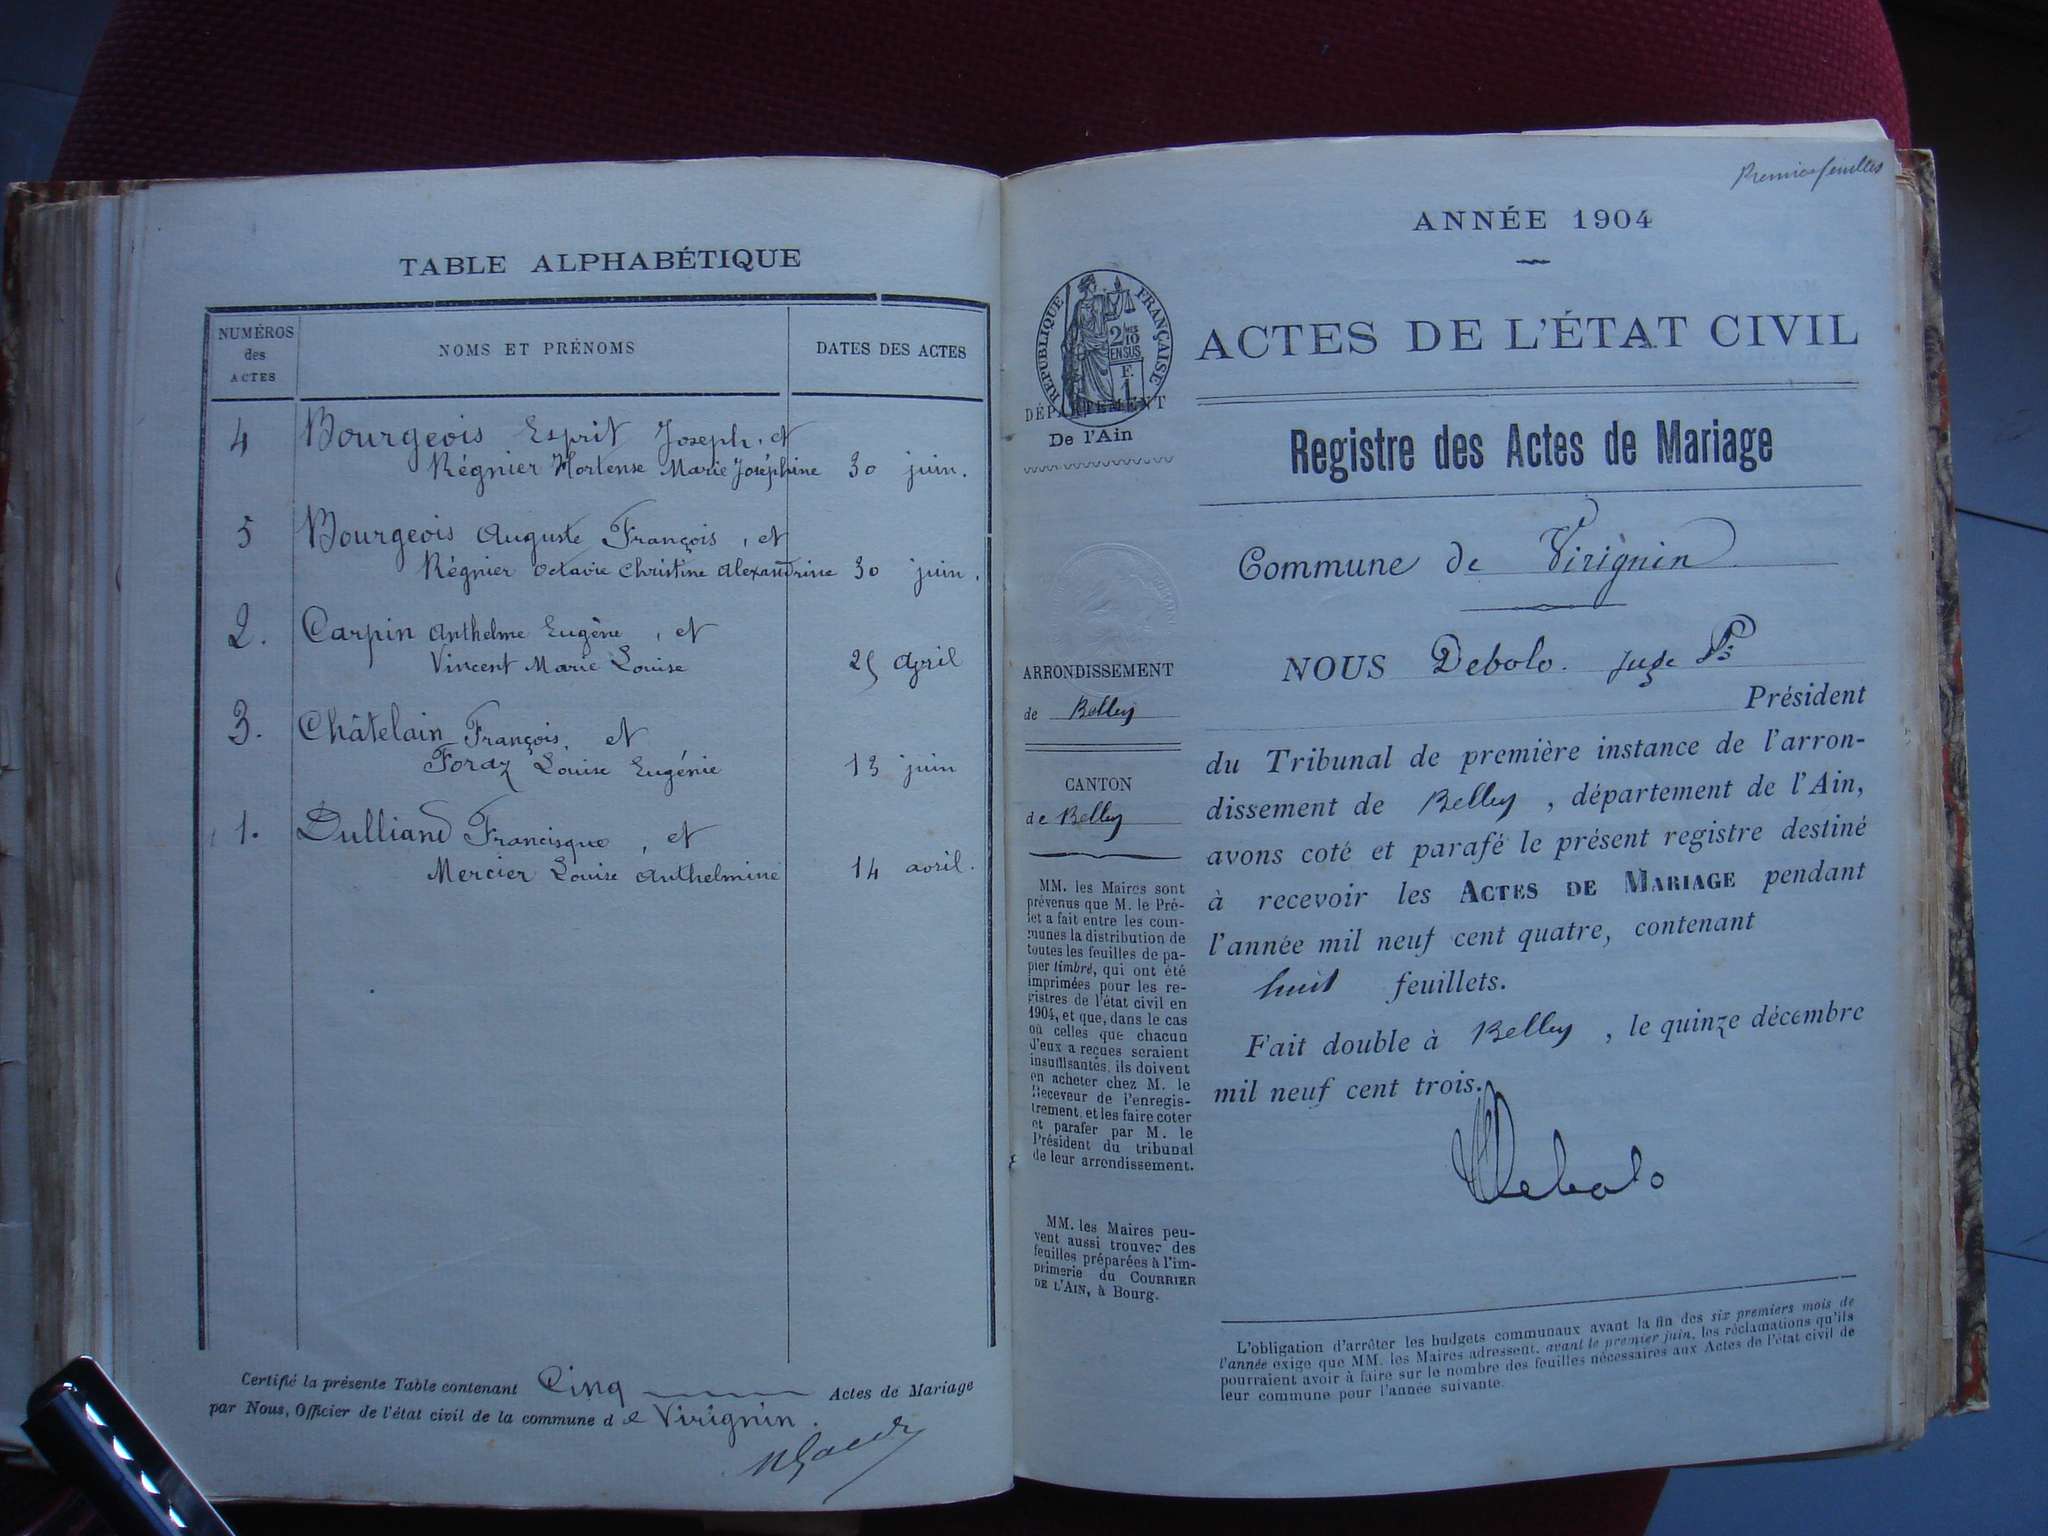 TABLE ALPHABÉTIQUE
NUMÉROS
des
ACTES
NOMS ET PRÉNOMS
DATES DES ACTES
4 Bourgeois Esprit Joseph, et
Régnier Hortense Marie Joséphine 30 juin.
5 Bourgeois Auguste François, et
Régnier Octavie Christine Alexandrine 30 juin.
2. Carpin Anthelme Eugène, et
Vincent Marie Louise 25 April
3. Châtelain François, et
Foraz Louise Eugénie 13 juin
1. Dulliand Francisque, et
Mercier Louise Anthelmine 14 avril.
Certifié la présente Table contenant Cinq Actes de Mariage
par Nous, Officier de l'état civil de la commune de Virignin.
Premier feuillet
ANNÉE 1904
RÉPUBLIQUE FRANÇAISE
2/10
EN SUS
F.
1
DÉPARTEMENT
De l'Ain
ARRONDISSEMENT
de Belley
CANTON
de Belley
MM. les Maires sont
prévenus que M. le Pré-
fet a fait entre les com-
munes la distribution de
toutes les feuilles de pa-
pier timbré, qui ont été
imprimées pour les re-
gistres de l'état civil en
1904, et que, dans le cas
où celles que chacun
d'eux a reçues seraient
insuffisantes, ils doivent
en acheter chez M. le
Receveur de l'enregis-
trement, et les faire coter
et parafer par M. le
Président du tribunal
de leur arrondissement.
MM. les Maires peu-
vent aussi trouver des
feuilles préparées à l'im-
primerie du COURRIER
DE L'AIN, à Bourg.
ACTES DE L'ÉTAT CIVIL
Registre des Actes de Mariage
Commune de Virignin
NOUS Debolo. juge
Président
du Tribunal de première instance de l'arron-
dissement de Belley, département de l'Ain,
avons coté et parafé le présent registre destiné
à recevoir les ACTES DE MARIAGE pendant
l'année mil neuf cent quatre, contenant
huit feuillets.
Fait double à Belley, le quinze décembre
mil neuf cent trois.
Debolo
L'obligation d'arrêter les budgets communaux avant la fin des six premiers mois de
l'année exige que MM. les Maires adressent, avant le premier juin, les réclamations qu'ils
pourraient avoir à faire sur le nombre des feuilles nécessaires aux Actes de l'état civil de
leur commune pour l'année suivante.